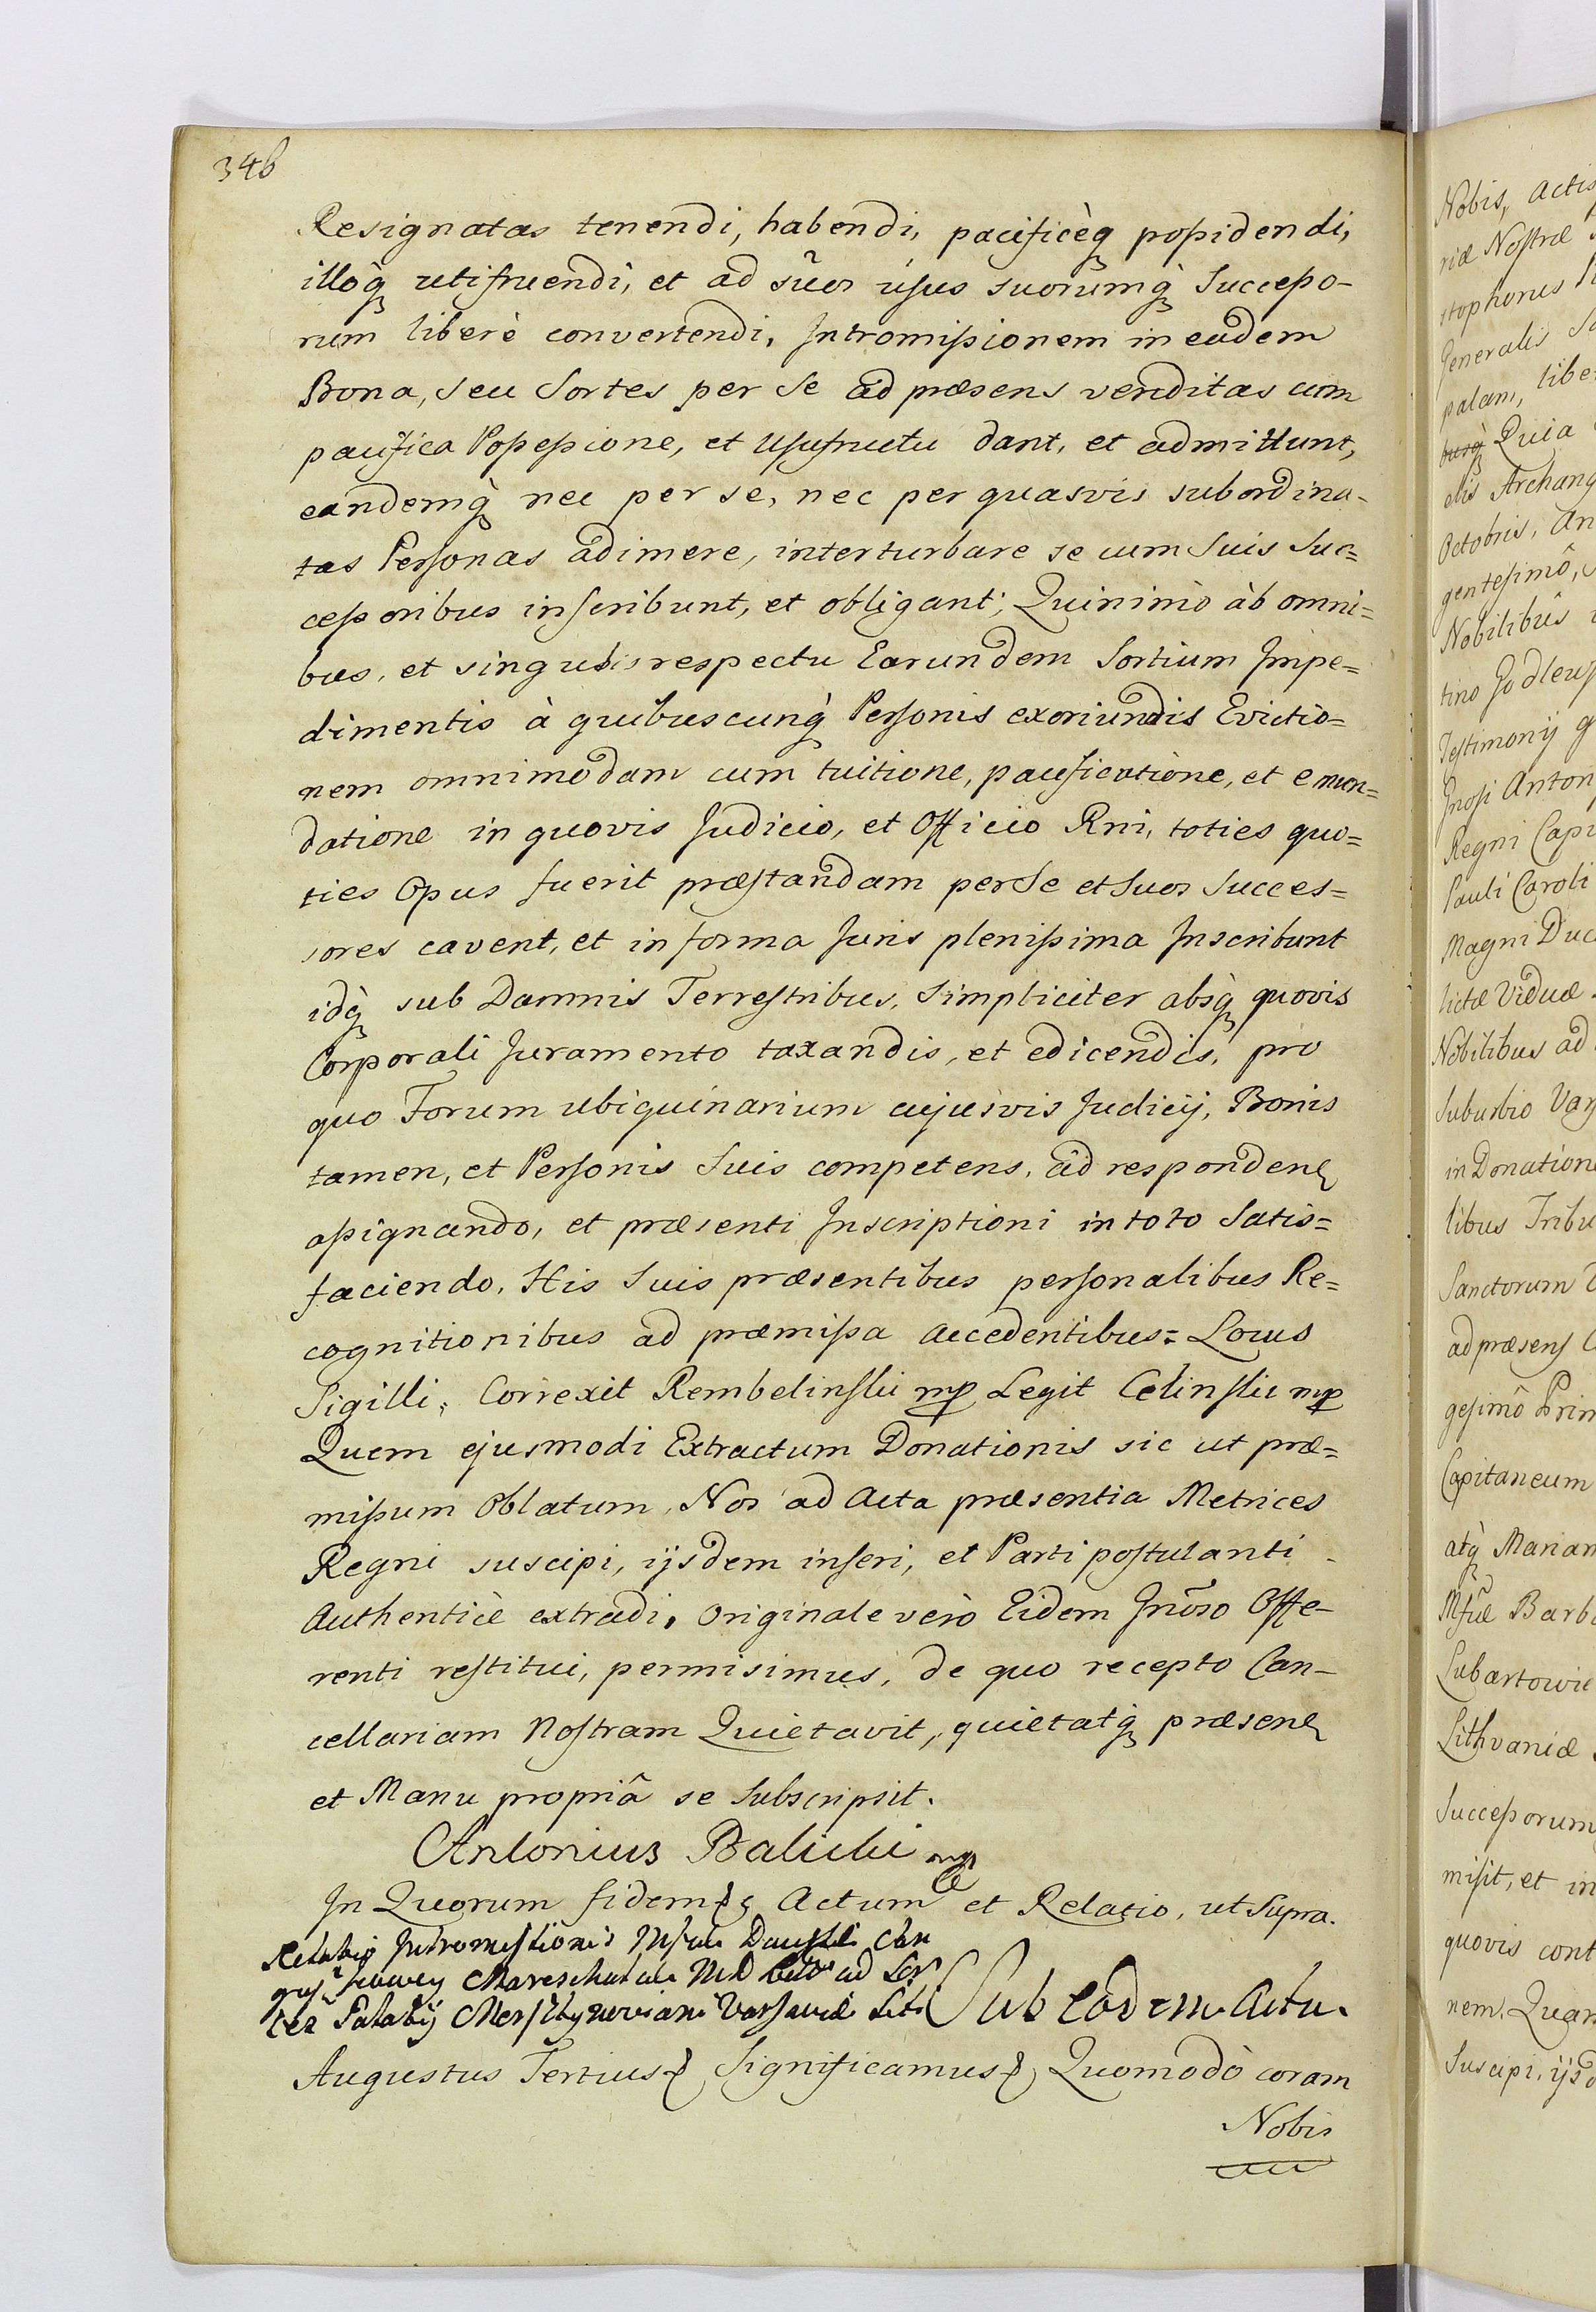 346
Resignatas tenendi, habendi, pacificèq possidendi,
illoq̀ utifruendi, et ad suos usus suorumq̀ Successo-
rum liberè convertendi, Intromissionem in eadem
Bona, seu Sortes per Se ad præsens venditas cum
pacifica Possessione, et Usufructu dant, et admittunt,
eandemq̀ nec per se, nec per quasvis subordina-
tas Personas adimere, interturbare se cum Suis Suc=
cessoribus inscribunt, et obligant; Quinimò àb omni=
bus, et singulis respectu Earundem Sortium Impe=
dimentis à quibuscunq̀ Personis exoriundis Evictio=
nem omnimodam cum tuitione, pacificatione, et emun=
datione in quovis Judicio, et Officio Rni, toties quo=
ties Opus fuerit præstandam per Se et Suos Succes=
sores cavent, et in forma Juris plenissima Inscribunt
idq̀ sub Damnis Terrestribus, Simpliciter absq̀ quovis
Corporali Juramento taxandis, et edicendis, pro
quo Forum ubiquinarium cujusvis Judicij, Bonis
tamen, et Personis Suis competens, ad responden
assignando, et præsenti Inscriptioni in toto Satis=
faciendo, His Suis præsentibus personalibus Re=
cognitionibus ad præmissa accedentibus= Locus
Sigilli, Correxit Rembelinski mp Legit Celinski mp
Quem ejusmodi Extractum Donationis sic ut præ=
missum Oblatum, Nos ad Acta præsentia Metrices
Regni suscipi, ijsdem inseri, et Parti postulanti
Authenticè extradi, Originale verò Eidem Gnõso Offe-
renti restitui, permisimus, de quo recepto Can-
cellariam Nostram Quietavit, quietatq̀ præsen
et Manu propriâ se Subscripsit.
Antonius Balicki mp
In Quorum fidem Actum et Relatio, ut Supra.
Relatio Intromissionis
Mareschal ad
Palatij Varsaviæ Siti
Sub Eodem Actu.
Augustus Tertius Significamus Quomodò coram
Nobis
Nobis, actis
riæ Nostræ
stophorus
Generalis
palam, libe
busq̀ Quia
elis Archang
Octobris, An
gentesimô,
Nobilibus
tino Godlews
Testimonij
Gnosi Anton
Regni Capi
Pauli Caroli
Magni Duc
lictæ Viduæ
Nobilibus ad
Suburbio Var
in Donatione
libus Tribu
Sanctorum
ad præsens
gesimô Prim
Capitaneum
atq̀ Marian
Barba
Lubartowie
Lithvaniæ
Successorum
misit, et in
quovis cont
nem. Quam
Suscipi, ijsd